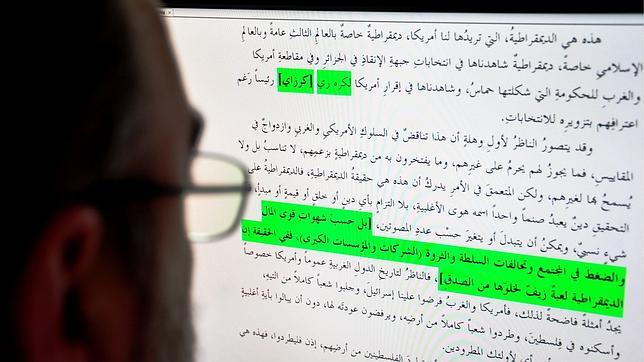 هذه هي الديمقراطيةُ، التي تريدُها لنا أمريكا، ديمقراطيةٌ خاصةٌ بالعالَمِ الثالثِ عامةً وبالعالمِ
الإسلامي خاصةً، ديمقراطيةٌ شاهدناها في انتخاباتِ جبهةِ الإنقاذِ في الجزائرِ وفي مقاطعةِ أمريكا
والغربِ للحكومةِ التي شكلتها حماسُ، وشاهدناها في إقرارِ أمريكا لكره زي [كرزاي] رئيساً رَغم
اعترافِهم بتزويرِه للانتخاباتِ.
وقد يتصورُ الناظرُ لأولِ وهلةٍ أن هذا تناقضٌ في السلوكِ الأمريكيِ والغربيِ وازدواجٌ في
المقاييسِ، فما يجوزُ لهم يحرمُ على غيرِهم، وما يفتخرون به من ديمقراطيةٍ بزعمِهم، لا تناسبُ بل ولا
يُسمحُ بها لغيرِهم، ولكن المتعمقَ في الأمرِ يدركُ أن هذه هي حقيقةُ الديمقراطيةِ، فالديمقراطيةُ على
التحقيقِ دينٌ يعبدُ صنماً واحداً اسمه هوى الأغلبيةِ، بلا التزامٍ بأيِ دينٍ أو خلقٍ أو قيمةٍ أو مبدأٍ،
شيءٍ نسبيٌ، ويمكنُ أن يتبدلَ أو يتغيرَ حسْب عددِ المصوتين، [بل حسبَ شهواتِ قوى المالِ
والضغطِ في المجتمعِ وتحالفاتِ السلطةِ والثروةِ (الشركات والمؤسسات الكبرى)، ففي الحقيقة إن
الديمقراطية لعبةٌ زيفٌ لخلوّها من الصدق]، فالناظرُ لتاريخِ الدولِ الغربيةِ عموماً وأمريكا خصوصاً
يجدُ أمثلةً فاضحةً لذلك، فأمريكا والغربُ فرضوا علينا إسرائيلَ، وجلبوا شعباً كاملاً من التيهِ،
وأسكنوه في فِلسطينَ، وطردوا شعباً كاملاً من أرضِه، ويرفضون عودتَه لها، دون أن يبالوا بأيةِ أغلبيةٍ
أي أولئك المطرودين.
الفلسطينيين من أرضِهم، إذن فليطردوا، فهذه هي